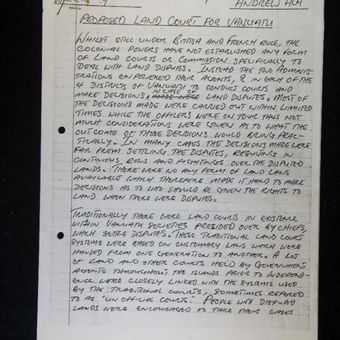 ANDREW
PROPOSED LAND COURT FOR VANUATU
WHILST STILL UNDER BRITISH AND FRENCH RULE, THE
COLONIAL POWERS HAVE NOT ESTABLISHED ANY FORM
OF LAND COURTS OR COMMISSION, SPECIFICALLY TO
DEAL WITH LAND DISPUTES. INSTEAD THE TWO ADMINIS-
TRATIONS EMPOWERED THEIR AGENTS, IN EACH OF THE
4 DISTRICTS OF VANUATU TO CONDUCT COURTS AND
MAKE DECISIONS, IN CASE OF LAND DISPUTES. MOST OF
THE DECISIONS MADE WERE CARRIED OUT WITHIN LIMITED
TIMES WHILE THE OFFICERS WERE ON TOUR THUS NOT
MUCH CONSIDERATIONS WERE GIVEN AS TO WHAT THE
OUTCOME OF THOSE DECISIONS WOULD BRING PRAC-
TICALLY. IN MANY CASES THE DECISIONS MADE WERE
FAR FROM SETTLING THE DISPUTES, RESULTING IN
CONTINUOUS ROWS AND FIGHTINGS OVER THE DISPUTED
LANDS. THERE WERE NO ANY FORM OF LAND LAWS
AVAILABLE WHICH THEREFORE MADE IT HARD TO MAKE
DECISIONS AS TO WHO SHOULD BE GIVEN THE RIGHTS TO
LAND WHEN THERE WERE DISPUTES.
TRADITIONALLY THERE WERE LAND COURTS IN EXISTENCE
WITHIN VANUATU SOCIETIES PRESIDED OVER BY CHIEFS,
WHICH SETTLE DISPUTES. THESE TRADITIONAL LAND COURT
SYSTEMS WERE BASED ON CUSTOMARY LAWS WHICH WERE
HANDED FROM ONE GENERATION TO ANOTHER. A LOT
OF LAND AND OTHER COURTS HELD BY GOVERNMENT
AGENTS THROUGHOUT THE ISLANDS PRIOR TO INDEPEND-
ENCE WERE CLOSELY LINKED WITH THE SYSTEMS USED
BY THE TRADITIONAL COURTS, SOMETIMES REFERRED
TO AS 'UN OFFICIAL COURTS'. PEOPLE WHO DISPUTED
LANDS WERE ENCOURAGED TO TAKE THEIR CASES